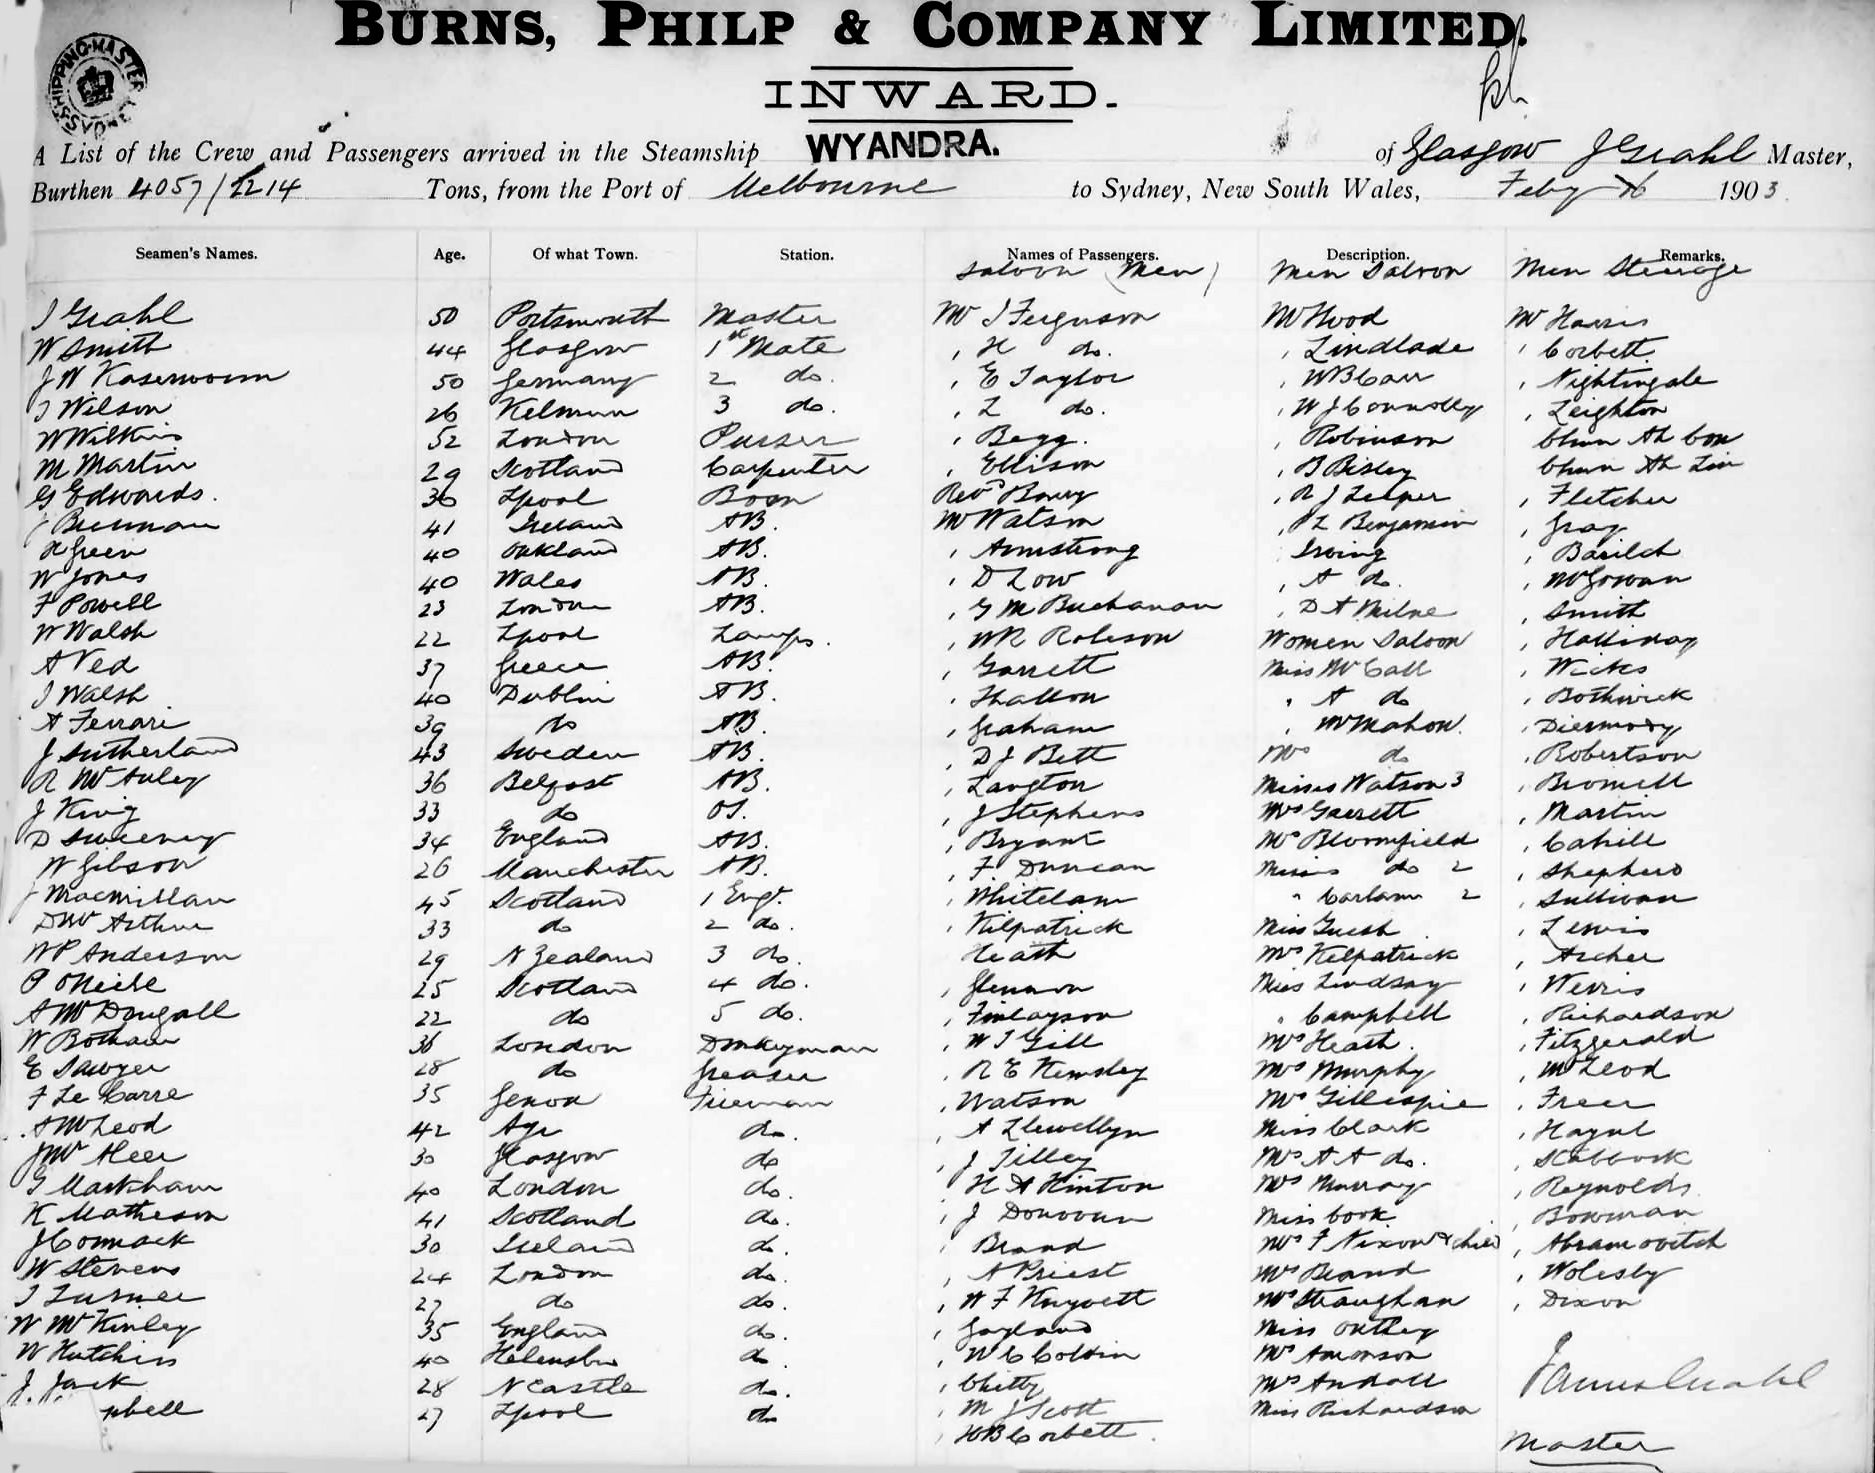 BURNS, PHILP & COMPANY LIMITED.
INWARD.
SHIPPING MASTER
A List of the Crew and Passengers arrived in the Steamship WYANDRA. of Glasgow J Grahl Master,
Burthen 4057/2214 Tons, from the Port of Melbourne to Sydney, New South Wales, Feby 1903
Seamen's Names. Age. Of what Town. Station. Names of Passengers. Description. Remarks.
Saloon (Men) Men Saloon Men Steerage
J Grahl 50 Portsmouth Master Mr J Ferguson Mr Hood Mr Harris
W Smith 44 Glasgow 1st Mate , H do. , Lindlade , Corbett.
J W 50 Germany 2 do. , E Taylor , W B Carr , Nightingale
J Wilson 26 3 do. , L do. , W J Connolly , Leighton
W Wilkins 52 London Purser , Begg. , Robinson Chin Ah Con
M Martin 29 Scotland Carpenter , Ellison , B Bisley Chun Ah Lin
G Edwards. 36 Lpool Bosn Revd Barry , R J Leeper , Fletcher
J Brennan 41 Ireland AB. Mr Watson , P L Benjamin , Gray
H Green 40 Oakland AB. , Armstrong Irving
W Jones 40 Wales AB. , D Low , A do. , McGowan
F Powell 23 London AB. , G M Buchanan , D A Milne , Smith
W Walsh 22 Lpool Lamps. , W R Robison Women Saloon , Halliday
A Ved 37 Greece AB. , Garrett Miss McCall , Wicks
J Walsh 40 Dublin AB. , " A do , Bothwick
A Ferrari 39 do AB. , Graham , McMahon. , Diermody
J Sutherland 43 Sweden AB. , D J Bett Mrs do , Robertson
R McAuley 36 Belfast AB. , Langton Misses Watson 3 , Bromell
J King 33 do OS. , J Stephens Mrs Garrett , Martin
D Sweeney 34 England AB. , Bryant Mrs Bloomfield , Cahill
W Gibson 26 Manchester AB. , F Duncan Misses do 2 , Shepherd
J Macmillan 45 Scotland 1 Engr. , Whitelam " 2 , Sullivan
D McArthur 33 do 2 do. , Kilpatrick Miss Guest , Lewis
W P Anderson 29 N Zealand 3 do. Heath Mrs Kilpatrick , Archer
P O'Neile 25 Scotland 4 do. , Glennon Miss Lindsay
A McDougall 22 do 5 do. , Finlayson " Campbell , Richardson
W Botham 36 London Donkeyman , W J Gill Mrs Heath. , Fitzgerald
E Sawyer 28 do Greaser , R E Hemsley Mrs Murphy , McLeod
F Le Carre 35 Genoa Fireman , Watson Mrs Gillespie , Freer
A McLeod 42 Ayr do. , A Llewellyn Miss Clark
J McAleer 30 Glasgow do , J Tilley Mrs A A do.
G Markham 40 London do. , H A Hinton Mrs Murray , Reynolds.
K Matheson 41 Scotland do. , J Donovan Miss Cook , Bowman
J Cormack 30 Iceland do. , Brand Mrs F Nixon & child , Abramovitch
W Stevens 24 London do. , A Priest Mrs Brand , Wolesby
J Turner 27 do do. , A F Knyvett Mrs Straughan , Dixon
W McKinley 35 England do. , Gayland Miss Oatley
W Hutchins 40 Helensbr do. , W C Mrs Amonson
J. Jack 28 N Castle do. , Chitty Mrs Andall James Grahl
pbell 27 Lpool do , M J Scott Miss Richardson
, W B Corbett. Master